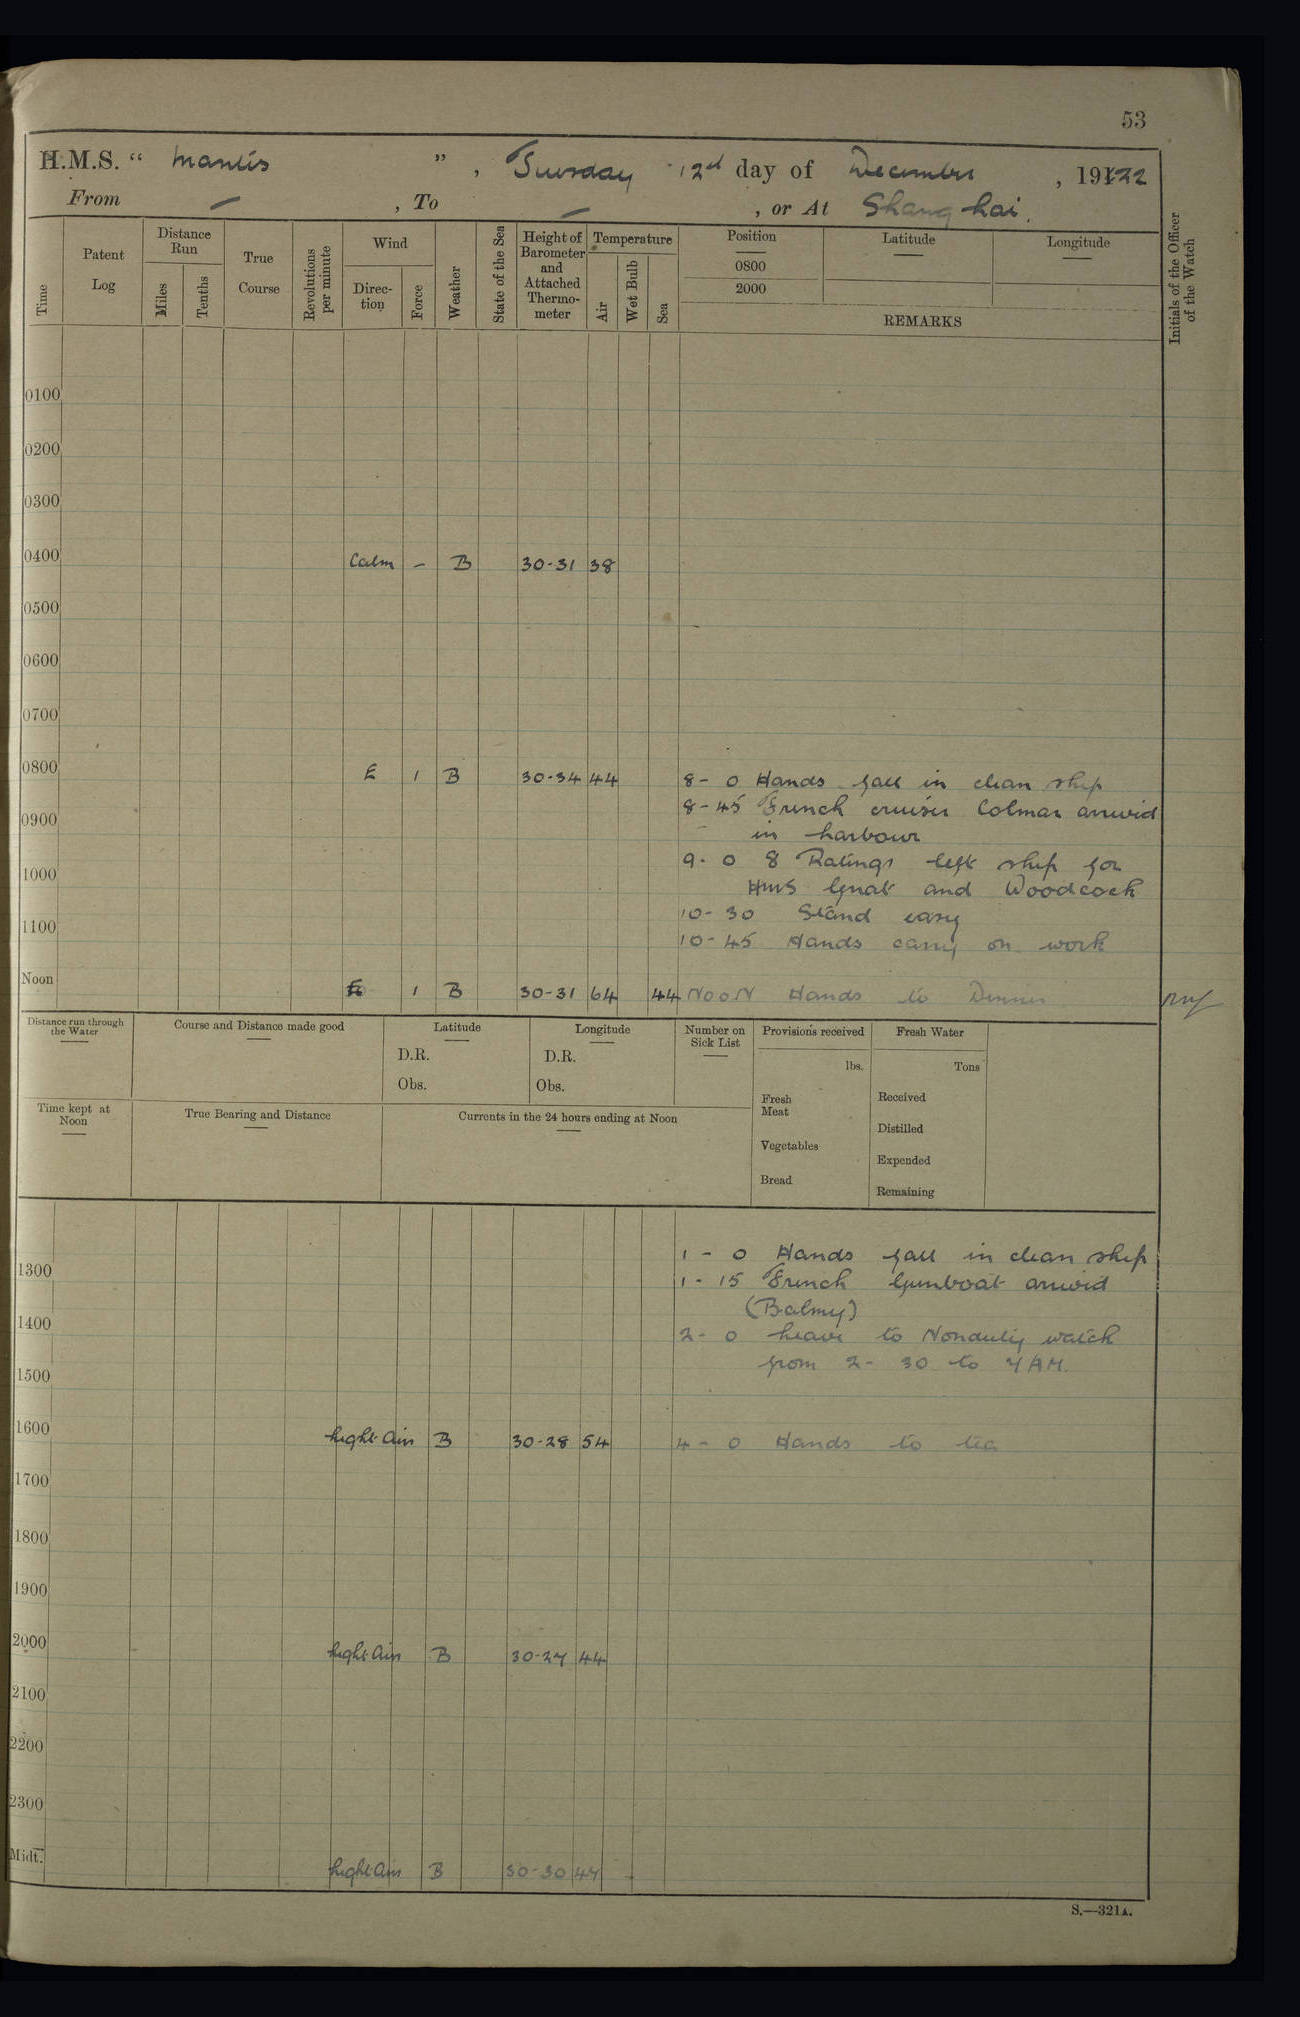 53
H.M.S. “ Mantis ” , Tuesday 12th day of December , 1922
From — , To — , or At Shanghai.
Time
Patent Log
Distance Run
Miles
Tenths
True Course
Revolutions per minute
Wind
Direc-tion
Force
Weather
State of the Sea
Height of Barometer and Attached Thermo-meter
Temperature
Air
Wet Bulb
Sea
Position
0800
2000
Latitude
Longitude
REMARKS
Initials of the Officer of the Watch
0100
0200
0300
0400 Calm - B 30-31 38
0500
0600
0700
0800 E 1 B 30-34 44 8- 0 Hands fall in clean ship
8-45 French cruiser Colmar arrived
0900
in harbour
9- 0 8 Ratings left ship for
1000
HMS Gnat and Woodcock
10-30 Stand easy
1100
10-45 Hands carry on work
Noon E 1 B 30-31 64 44 NOON Hands to Dinner
Distance run through the Water
Course and Distance made good
Latitude
D.R.
Obs.
Longitude
D.R.
Obs.
Number on Sick List
Provisions received
lbs.
Fresh Meat
Vegetables
Bread
Fresh Water
Tons
Received
Distilled
Expended
Remaining
Time kept at Noon
True Bearing and Distance
Currents in the 24 hours ending at Noon
1 - 0 Hands fall in clean ship
1300
1 - 15 French Gunboat arrived
(Balmy)
1400
2- 0 Leave to Nonduty watch
from 2- 30 to 7AM.
1500
1600 Light Airs B 30-28 54 4- 0 Hands to tea
1700
1800
1900
2000 Light Airs B 30-27 44
2100
2200
2300
Midt. Light Airs B 30-30 47
S.—321A.